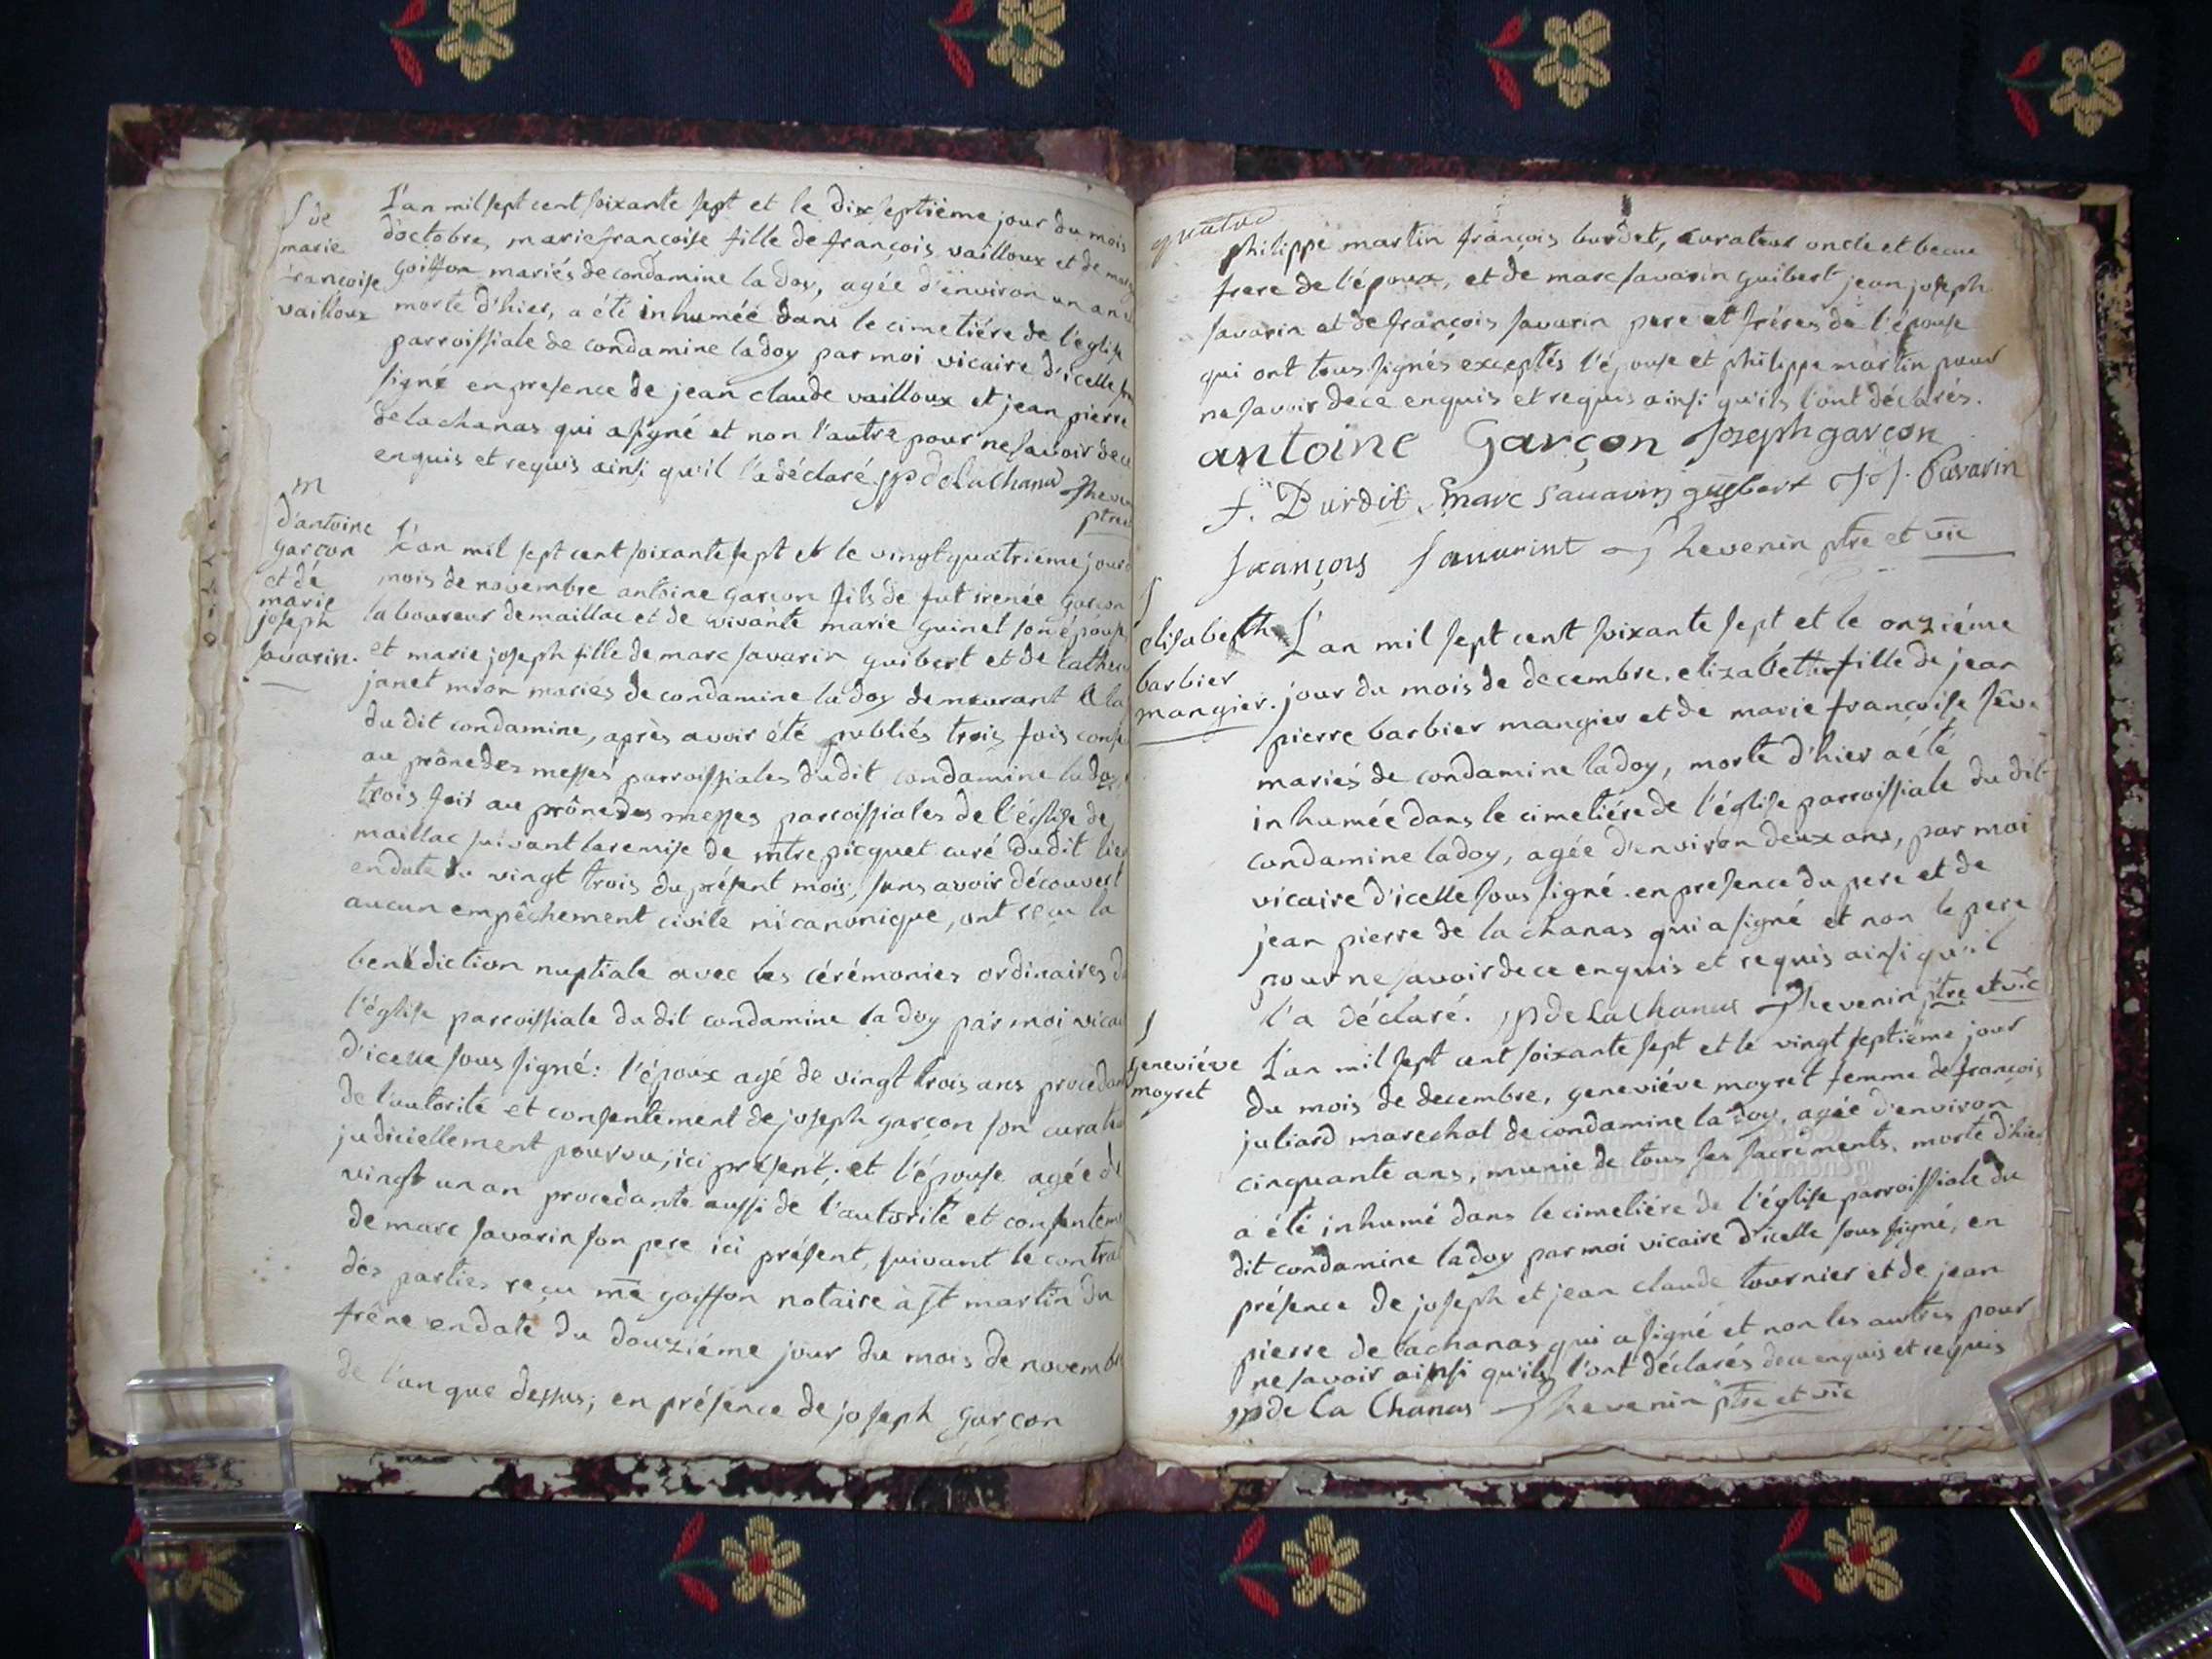 S de
marie
francoise
vailloux
L'an mil sept cent soixante sept et le dix septième jour du mois
d'octobre, marie françoise fille de françois vailloux et de
goiffon mariés de condamine la doy, agée d'environ un an
morte d'hier, a été inhumée dans le cimetiére de l'église
parroissiale de condamine ladoy par moi vicaire d'icelle
signé en presence de jean claude vailloux et jean pierre
delachanas qui a signé et non l'autre pour ne savoir dece
enquis et requis ainsi qu'il l'a déclaré. jp delachanas
ptre
m
d'antoine
garçon
et de
marie
joseph
savarin.
L'an mil sept cent soixante sept et le vingt quatrieme jour
mois de novembre antoine garcon fils de fut irenée garcon
laboureur demaillac et de vivante marie guinet son épouse
et marie joseph fille de marc savarin guibert et de
janet mion mariés de condamine la doy demeurant
du dit condamine, après avoir été publiés trois fois
au prône des messes parroissiales dudit condamine ladoy
trois fois au prône des messes parroissiales de l'église de
maillac suivant laremise de mtre picquet curé dudit lieu
en date du vingt trois du présent mois, sans avoir découvert
aucun empêchement civile ni canonique, ont reçu la
benédiction nuptiale avec les cérémonies ordinaires
l'église parroissiale du dit condamine la doy par moi
d'icelle sous signé: l'époux agé de vingt trois ans
de l'autorité et consentement de joseph garçon son
judiciellement pourvu, ici présent; et l'épouse agée
vingt un an procedante aussi de l'autorité et
de marc savarin son pere ici présent, suivant le
des parties reçu me goiffon notaire à st martin du
frêne en date du douziéme jour du mois de
de l'an que dessus; en présence de joseph garçon
philippe martin françois burdet, curateur oncle et beau
frere de l'époux, et de marc savarin guibert jean joseph
savarin et de françois savarin pere et fréres de l'épouse
qui ont tous signés exceptés l'épouse et philippe martin pour
ne savoir dece enquis et requis ainsi qu'ils l'ont déclarés.
antoine Garçon Joseph garcon
f. Burdit marc sauarin guybert J. J. Savarin
françois sauarint Thevenin ptre et vic
S
elisabeth
barbier
mangier.
L'an mil sept cent soixante sept et le onziéme
jour du mois de decembre, elizabeth fille de jean
pierre barbier mangier et de marie françoise
mariés de condamine ladoy, morte d'hier a été
inhumée dans le cimetiére de l'église parroissiale du dit
condamine ladoy, agée d'environ deux ans, par moi
vicaire d'icelle sous signé. en presence du pere et de
jean pierre de la chanas qui a signé et non le pere
pour ne savoir dece enquis et requis ainsi qu'il
l'a déclaré. jp de la Chanas Thevenin ptre et vic
S
Geneviéve
moyret
L'an mil sept cent soixante sept et le vingt septiéme jour
du mois de decembre, geneviéve moyret femme de françois
juliard marechal de condamine la doy, agée d'environ
cinquante ans, munie de tous ses sacrements, morte d'hier
a été inhumé dans le cimetiére de l'église parroissiale du
dit condamine ladoy par moi vicaire d'icelle sous signé, en
présence de joseph et jean claude tournier et de jean
pierre de lachanas qui a signé et non les autres pour
ne savoir ainsi qu'ils l'ont déclarés dece enquis et requis
jp de la Chanas Thevenin ptre et vic